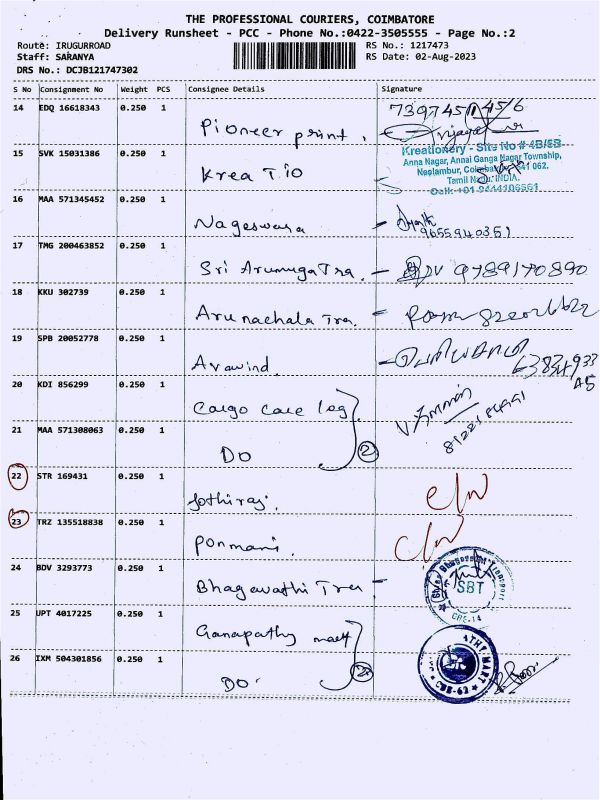 THE PROFESSIONAL COURIERS, COIMBATORE
Delivery Runsheet - PCC - Phone No.:0422-3505555 - Page No.:2
Route: IRUGURROAD
RS No.: 1217473
Staff: SARANYA
RS Date: 02-Aug-2023
DRS No.: DCJB121747302
S No Consignment No Weight PCS Consignee Details Signature
14 EDQ 16618343 0.250 1
Pioneer print.
15 SVK 15031386 0.250 1
Krea Tio
Kreationery - Site No # 4B/5B
Anna Nagar, Annai Ganga Nagar Township,
Neelambur, Coimbatore 641 062.
Tamil Nadu, INDIA.
16 MAA 571345452 0.250 1
Nageswara
9655940351
17 TMG 200463852 0.250 1
Sri Arumuga Tra. 9789170890
18 KKU 302739 0.250 1
Arunachala Tra.
19 SPB 20052778 0.250 1
Aravind.
20 KDI 856299 0.250 1
Cargo Care Log
21 MAA 571308063 0.250 1
DO 2
22 STR 169431 0.250 1
Jothiraj.
23 TRZ 135518838 0.250 1
Ponmani.
24 BDV 3293773 0.250 1
Bhagavathi Tra
SBT
CBE-14
25 UPT 4017225 0.250 1
Ganapathy mart
26 IXM 504301856 0.250 1
DO 2
CBE-62